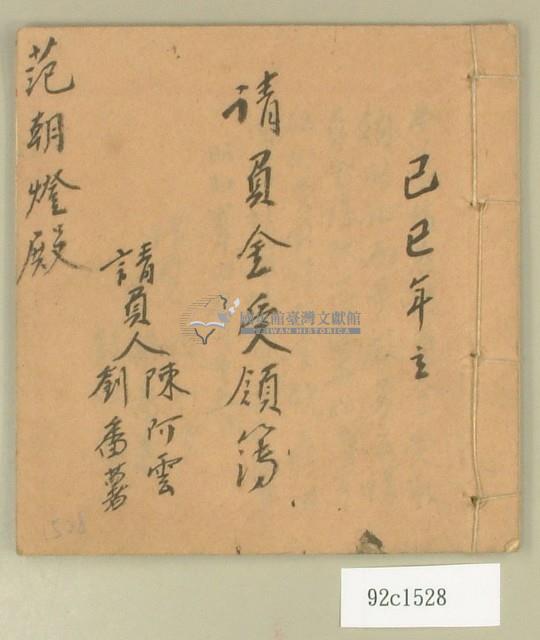 己巳年立
請員金受領簿
請員人陳阿雲
劉番薯
范朝燈殿
國史館臺灣文獻館
TAIWAN HISTORICA
92c1528